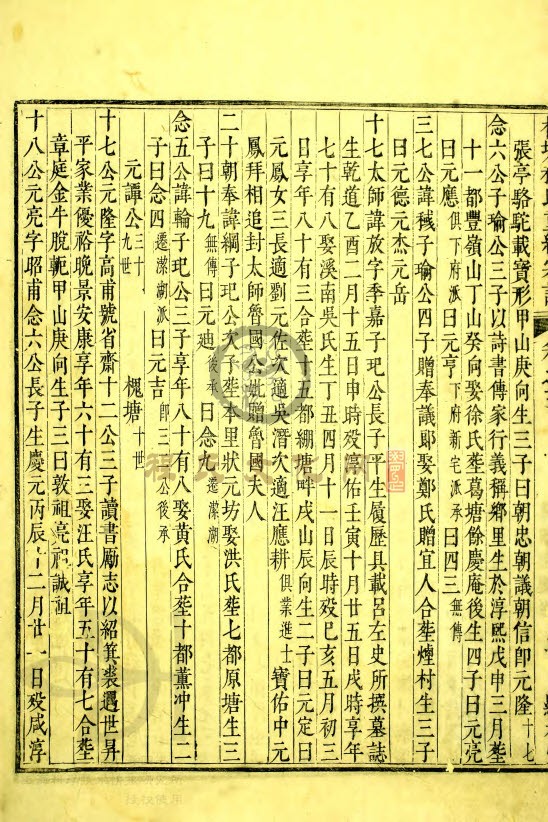 張亭駱駝載寶形甲山庚向生三子曰朝忠朝議朝信即元隆十七
念六公子瑜公三子以詩書傳家行義稱鄉里生於淳熙戊申三月葬
十一都豐嶺山丁山癸向娶徐氏葬葛塘餘慶庵後生四子曰元亮
曰元應俱下府派曰元亨下府新宅派承曰四三無傳
三七公諱　子瑜公四子贈奉議郎娶鄭氏贈宜人合葬煙村生三子
曰元德元杰元岳
十七太師諱放字季嘉子玘公長子平生履歷具載呂左史所撰墓誌
生乾道乙酉二月十五日申時殁淳佑壬寅十月廿五日戌時享年
七十有八娶溪南吳氏生丁丑四月十一日辰時殁己亥五月初三
日享年八十有三合葬十五都綳塘畔戌山辰向生二子曰元定曰
元鳳女三長適劉元佐次適吳潛次適汪應耕俱業進士寶佑中元
鳳拜相追封太師魯國公妣贈魯國夫人
二十朝奉諱綱子玘公次子葬本里狀元坊娶洪氏葬七都原塘生三
子曰十九無傳曰元廸後承曰念九遷潔湖
念五公諱輪子玘公三子享年八十有八娶黃氏合葬十都薰冲生二
子曰念四遷潔湖派曰元吉即三一公後承
元譚公三十九世　槐塘十世
十七公元隆字高甫號省齋十二公三子讀書勵志以紹箕裘遇世昇
平家業優裕晚景安康享年六十有三娶汪氏享年五十有七合葬
章庭金牛脫軛甲山庚向生子三曰敦祖亮祖誠祖
十八公元亮字昭甫念六公長子生慶元丙辰十二月廿一日殁咸淳